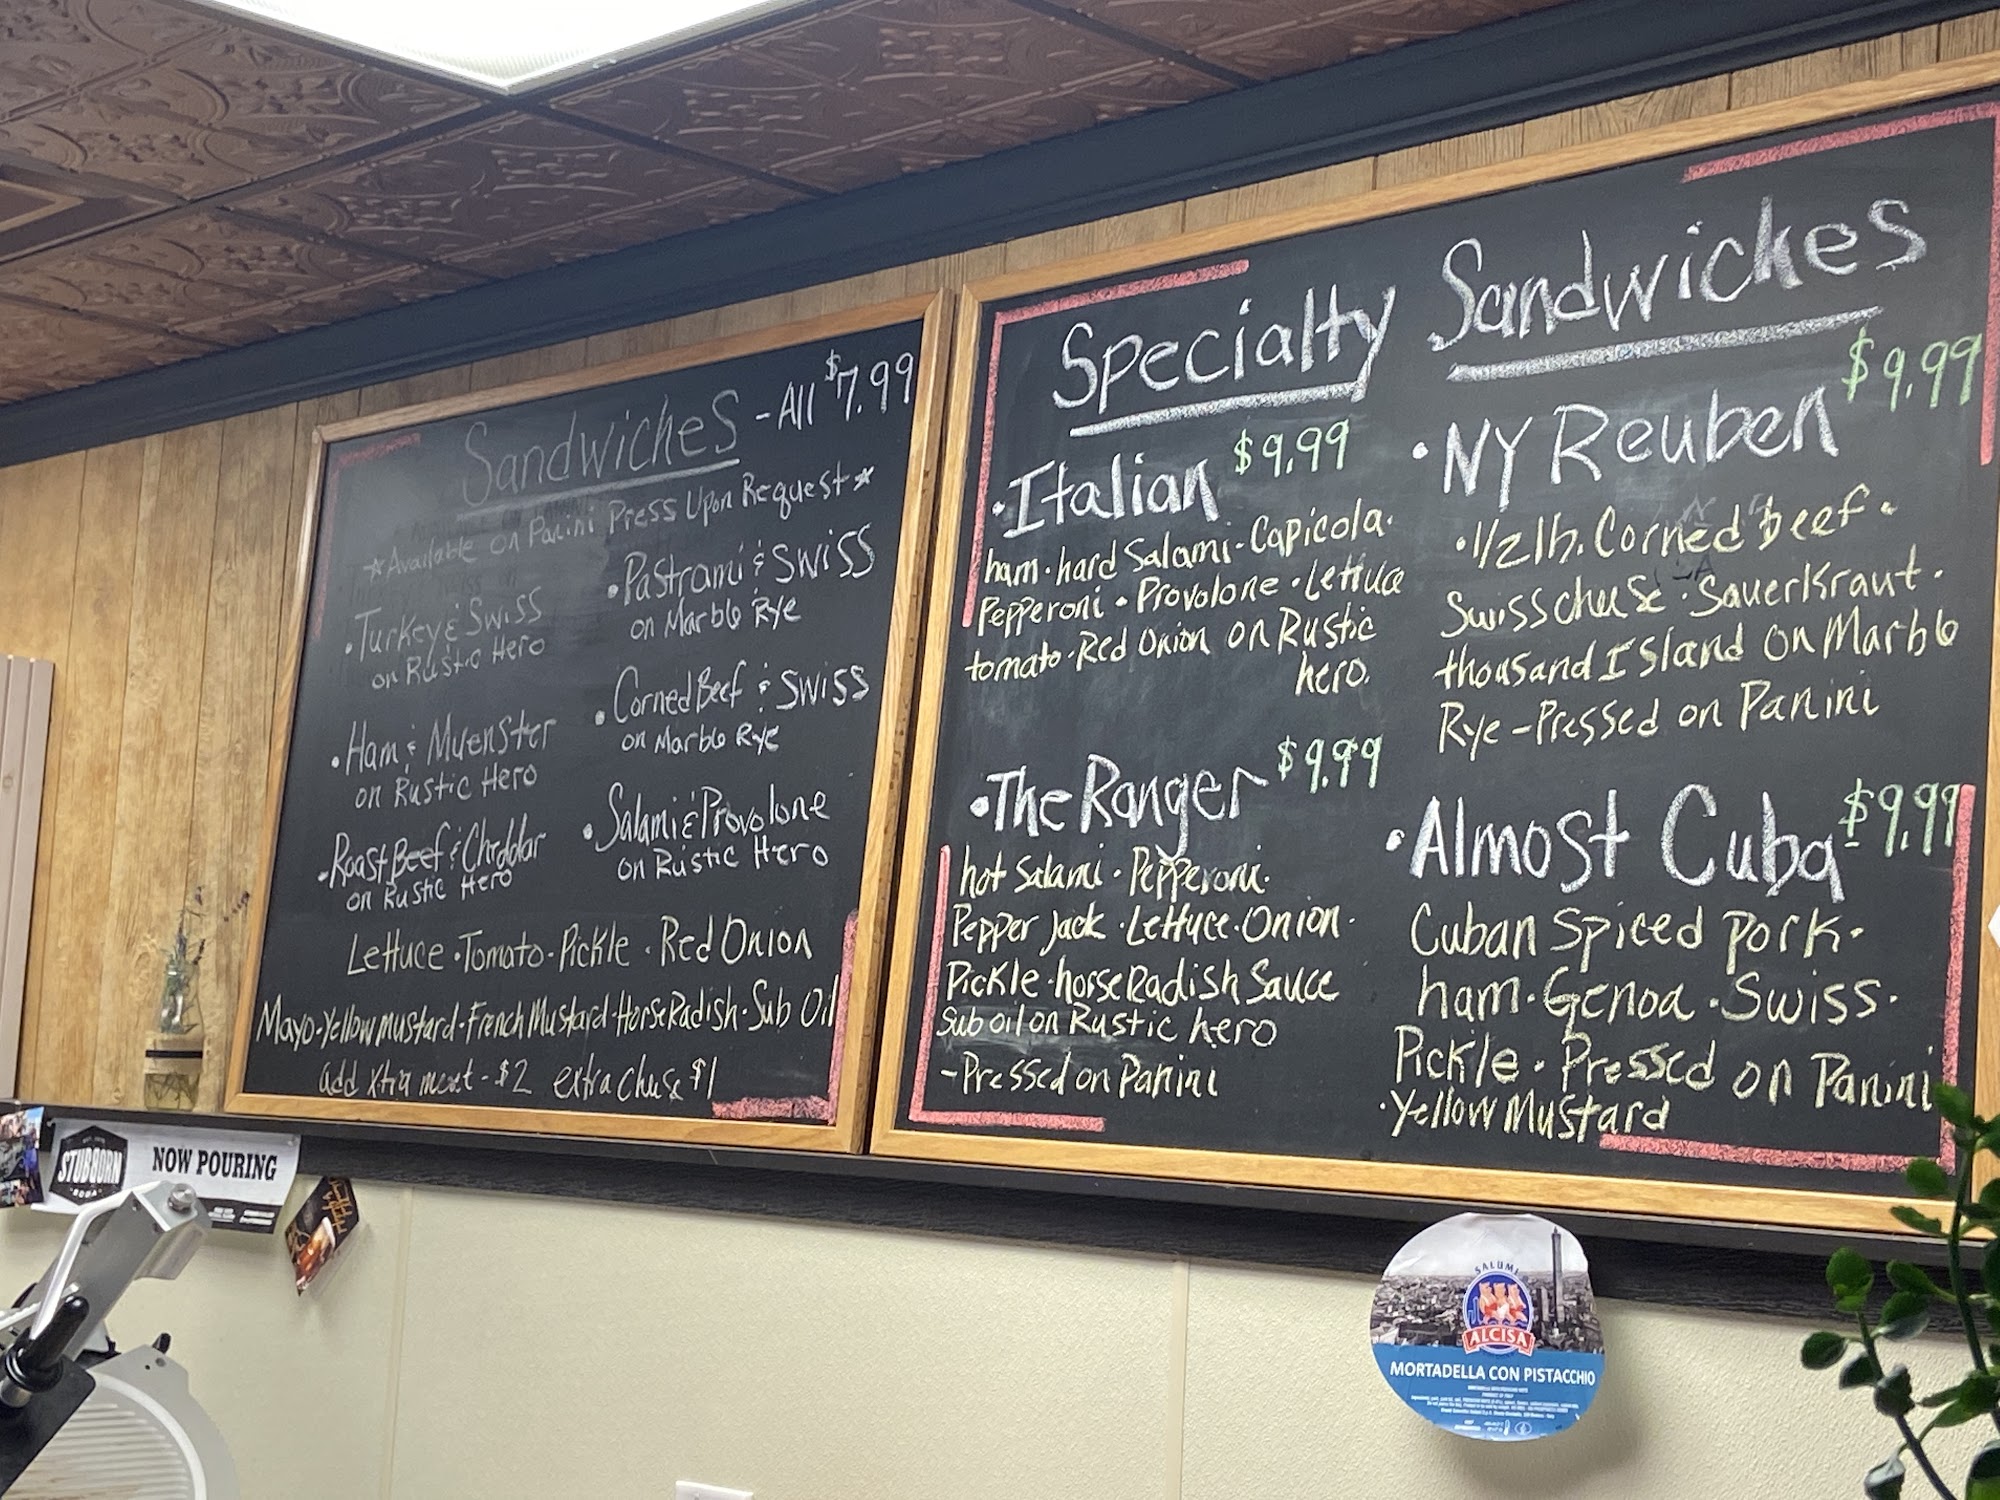 Sandwiches - All $7.99
*Available on Panini Press Upon Request*
• Turkey & Swiss
on Rustic Hero
• Ham & Muenster
on Rustic Hero
• Roast Beef & Cheddar
on Rustic Hero
• Pastrami & Swiss
on Marble Rye
• Corned Beef & Swiss
on Marble Rye
• Salami & Provolone
on Rustic Hero
Lettuce • Tomato - Pickle • Red Onion
Mayo • Yellow mustard • French Mustard • HorseRadish • Sub Oil
add xtra meat - $2 extra cheese $1
Specialty Sandwiches
• Italian $9.99
ham • hard Salami - Capicola •
Pepperoni • Provolone • Lettuce
tomato • Red Onion on Rustic
hero.
• The Ranger $9.99
hot Salami • Pepperoni •
Pepper Jack • Lettuce • Onion •
Pickle • horseRadish Sauce
Sub oil on Rustic hero
- Pressed on Panini
• NY Reuben $9.99
• 1/2 lb. Corned beef •
Swiss cheese • Sauerkraut •
thousand Island on Marble
Rye - Pressed on Panini
• Almost Cuba $9.99
Cuban spiced pork •
ham • Genoa • Swiss •
Pickle • Pressed on Panini
• Yellow Mustard
STUBBORN
SODA
NOW POURING
SALUMI
ALCISA
MORTADELLA CON PISTACCHIO